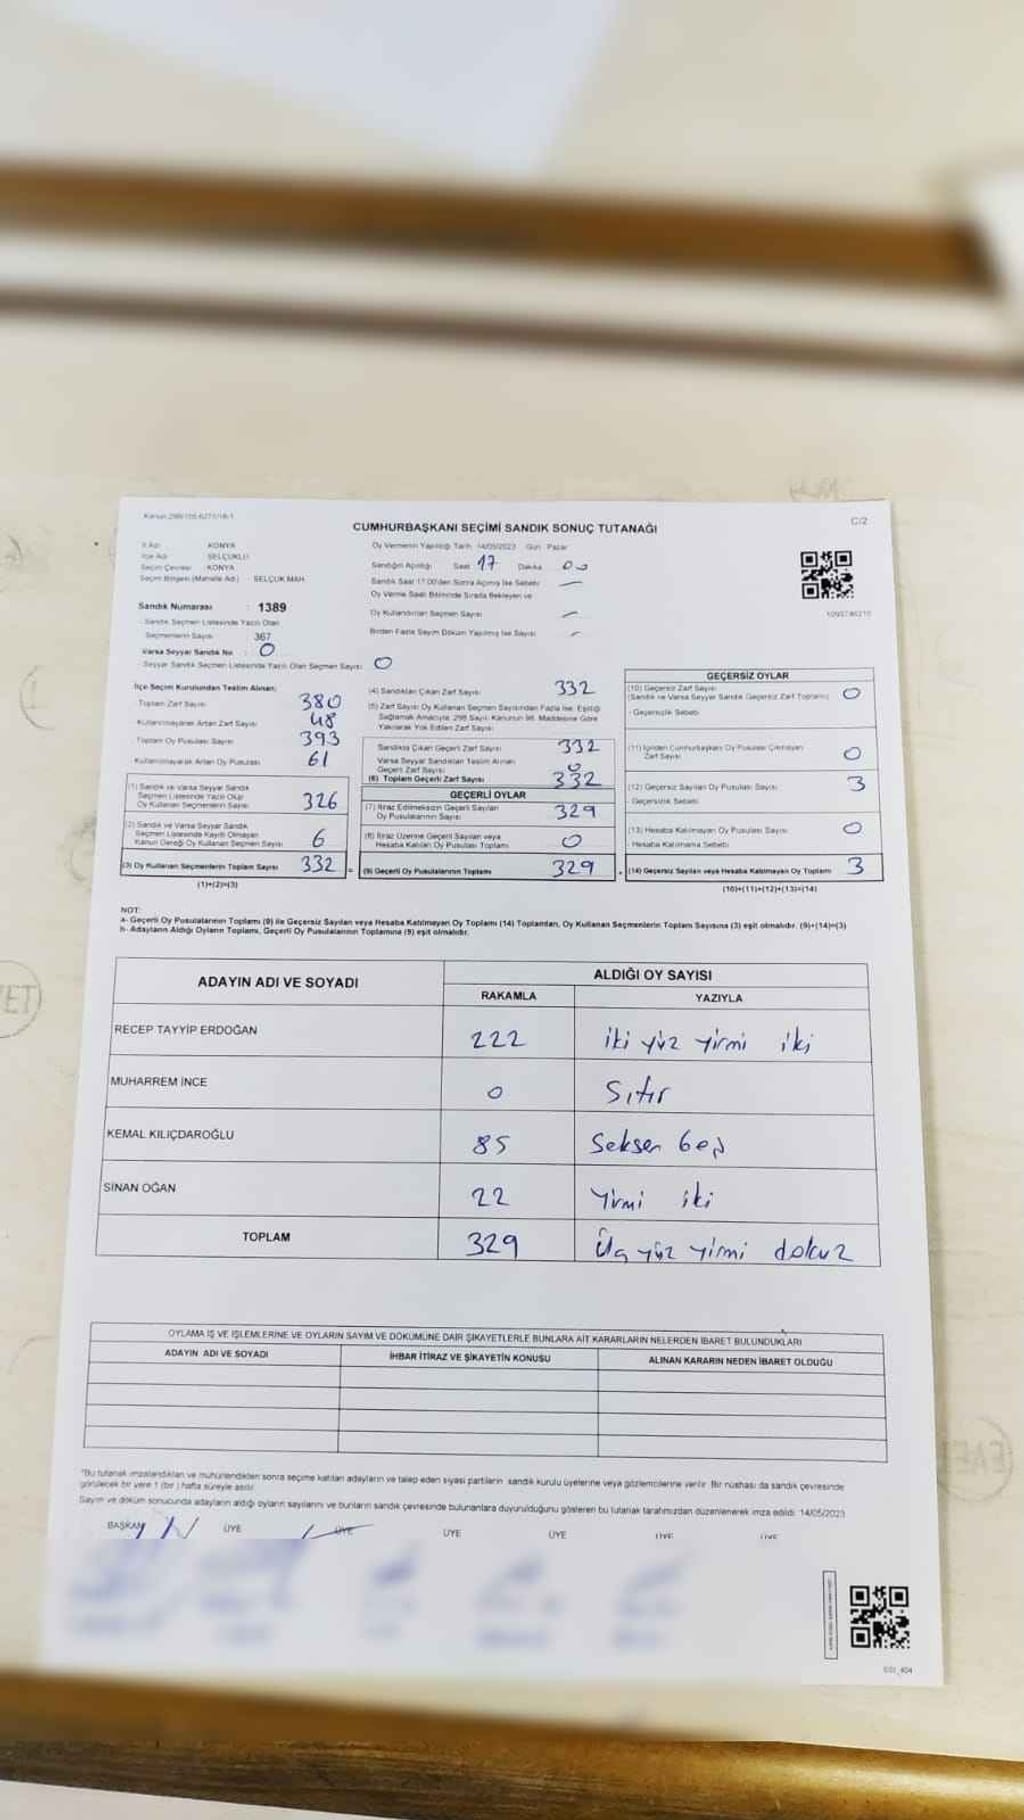 CUMHURBAŞKANI SEÇİMİ SANDIK SONUÇ TUTANAĞI
C/2
İl Adı KONYA
İlçe Adı SELÇUKLU
Seçim Çevresi KONYA
Seçim Bölgesi (Mahalle Adı) SELÇUK MAH
Sandık Numarası : 1389
Sandık Seçmen Listesinde Yazılı Olan
Seçmenlerin Sayısı 367
Varsa Seyyar Sandık No : 0
Seyyar Sandık Seçmen Listesinde Yazılı Olan Seçmen Sayısı 0
Oy Vermenin Yapıldığı Tarih 14/05/2023 Gün Pazar
Sandığın Açıldığı Saat 17 Dakika 00
Sandık Saat 17.00'den Sonra Açılmış İse Sebebi
Oy Verme Saati Bitiminde Sırada Bekleyen ve
Oy Kullandırılan Seçmen Sayısı
Birden Fazla Sayım Döküm Yapılmış İse Sayısı
İlçe Seçim Kurulundan Teslim Alınan;
Toplam Zarf Sayısı 380
Kullanılmayarak Artan Zarf Sayısı 48
Toplam Oy Pusulası Sayısı 393
Kullanılmayarak Artan Oy Pusulası 61
(1) Sandık ve Varsa Seyyar Sandık
Seçmen Listesinde Yazılı Olup
Oy Kullanan Seçmenlerin Sayısı 326
(2) Sandık ve Varsa Seyyar Sandık
Seçmen Listesinde Kayıtlı Olmayan
Kanun Gereği Oy Kullanan Seçmenlerin Sayısı 6
(3) Oy Kullanan Seçmenlerin Toplam Sayısı 332
(1)+(2)=(3)
(4) Sandıktan Çıkan Zarf Sayısı 332
(5) Zarf Sayısı Oy Kullanan Seçmen Sayısından Fazla İse, Eşitliği
Sağlamak Amacıyla, 298 Sayılı Kanunun 98. Maddesine Göre
Yakılarak Yok Edilen Zarf Sayısı
Sandıkta Çıkan Geçerli Zarf Sayısı 332
Varsa Seyyar Sandıktan Teslim Alınan
Geçerli Zarf Sayısı 0
(6) Toplam Geçerli Zarf Sayısı 332
GEÇERLİ OYLAR
(7) İtiraz Edilmeksizin Geçerli Sayılan
Oy Pusulalarının Sayısı 329
(8) İtiraz Üzerine Geçerli Sayılan veya
Hesaba Katılan Oy Pusulası Toplamı 0
(9) Geçerli Oy Pusulalarının Toplamı 329
GEÇERSİZ OYLAR
(10) Geçersiz Zarf Sayısı
(Sandık ve Varsa Seyyar Sandık Geçersiz Zarf Toplamı) 0
- Geçersizlik Sebebi
(11) İçinden Cumhurbaşkanı Oy Pusulası Çıkmayan
Zarf Sayısı 0
(12) Geçersiz Sayılan Oy Pusulası Sayısı 3
Geçersizlik Sebebi
(13) Hesaba Katılmayan Oy Pusulası Sayısı 0
- Hesaba Katılmama Sebebi
(14) Geçersiz Sayılan veya Hesaba Katılmayan Oy Toplamı 3
(10)+(11)+(12)+(13)=(14)
NOT:
a- Geçerli Oy Pusulalarının Toplamı (9) ile Geçersiz Sayılan veya Hesaba Katılmayan Oy Toplamı (14) Toplamları, Oy Kullanan Seçmenlerin Toplam Sayısına (3) eşit olmalıdır. (9)+(14)=(3)
b- Adayların Aldığı Oyların Toplamı, Geçerli Oy Pusulalarının Toplamına (9) eşit olmalıdır.
ADAYIN ADI VE SOYADI
ALDIĞI OY SAYISI
RAKAMLA YAZIYLA
RECEP TAYYİP ERDOĞAN 222 iki yüz yirmi iki
MUHARREM İNCE 0 Sıfır
KEMAL KILIÇDAROĞLU 85 Seksen beş
SİNAN OĞAN 22 Yirmi iki
TOPLAM 329 Üç yüz yirmi dokuz
OYLAMA İŞ VE İŞLEMLERİNE VE OYLARIN SAYIM VE DÖKÜMÜNE DAİR ŞİKAYETLERLE BUNLARA AİT KARARLARIN NELERDEN İBARET BULUNDUKLARI
ADAYIN ADI VE SOYADI İHBAR İTİRAZ VE ŞİKAYETİN KONUSU ALINAN KARARIN NEDEN İBARET OLDUĞU
"Bu tutanak imzalandıktan ve mühürlendikten sonra seçime katılan adayların ve talep eden siyasi partilerin sandık kurulu üyelerine veya gözlemcilerine verilir. Bir nüshası da sandık çevresinde
görülecek bir yere 1 (bir) hafta süreyle asılır.
Sayım ve döküm sonucunda adayların aldığı oyların sayılarını ve bunların sandık çevresinde bulunanlara duyurulduğunu gösteren bu tutanak tarafımızdan düzenlenerek imza edildi. 14/05/2023
BAŞKAN ÜYE ÜYE ÜYE ÜYE ÜYE ÜYE